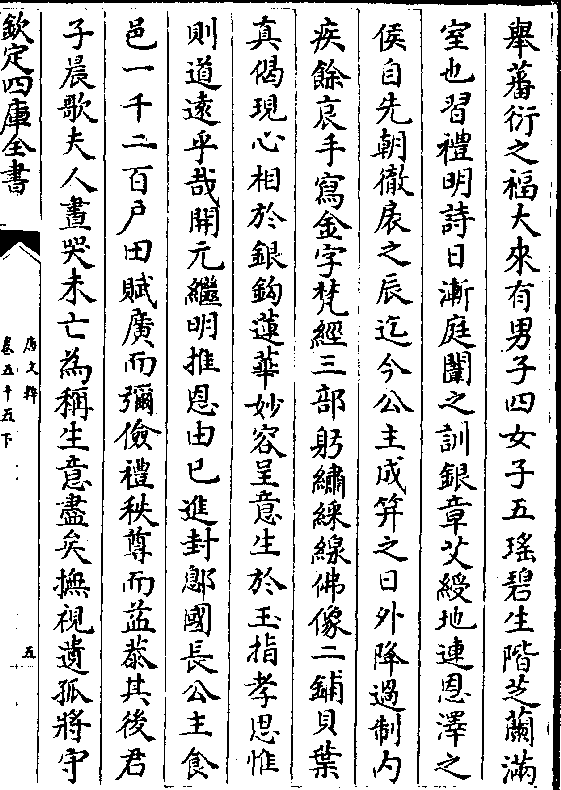 舉蕃衍之福大來有男子四女子五瑤碧生階芝蘭滿
室也習禮明詩日漸庭闈之訓銀章艾綬地連恩澤之
侯自先朝徹扆之辰迄今公主成笄之日外降過制内
疾餘哀手寫金字梵經三部躬繡綵線佛像二鋪貝葉
真偈現心相於銀鈎蓮華妙容呈意生於玉指孝思惟
則道遠乎哉開元繼明推恩由已進封鄎國長公主食
邑一千二百户田賦廣而彌儉禮秩尊而益恭其後君
子晨歌夫人晝哭未亡為稱生意盡矣撫視遺孤將守
欽定四庫全書
唐文粹
卷五十五下
五